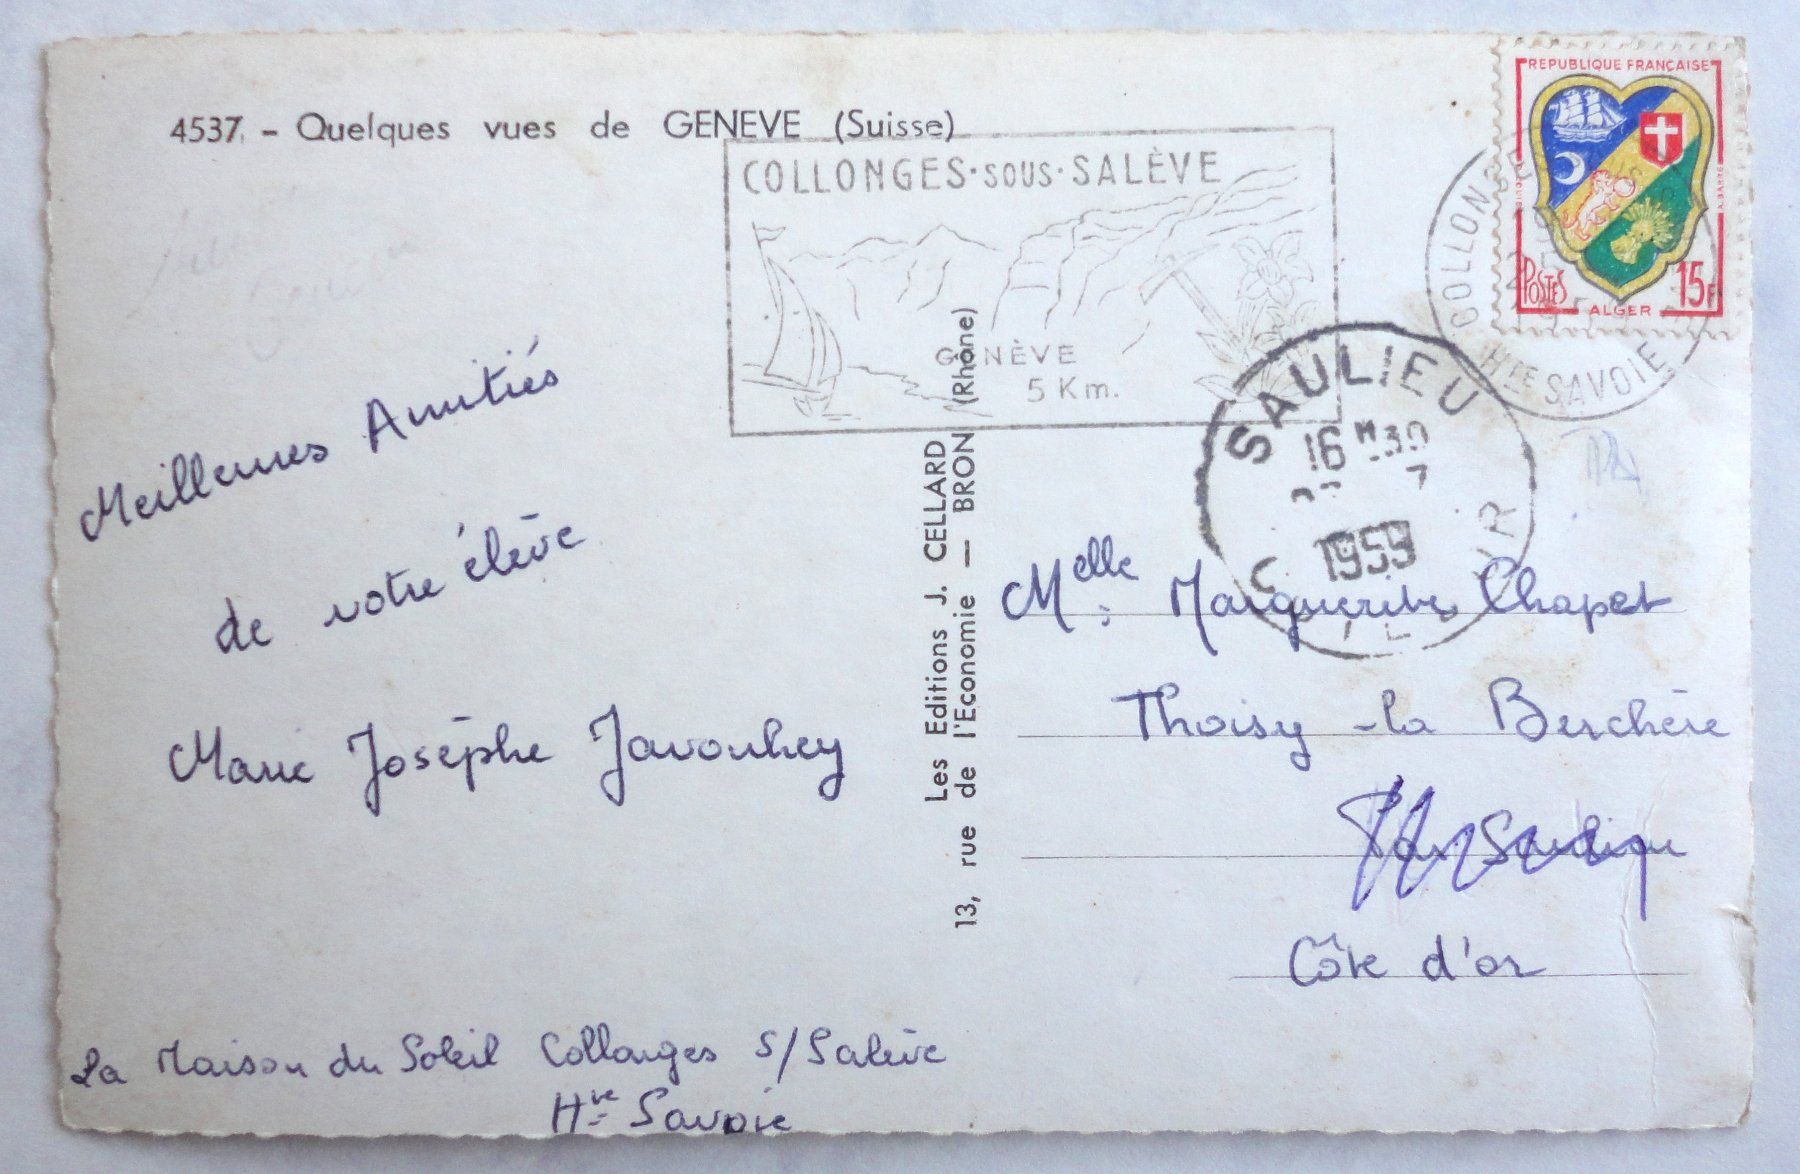 4537. - Quelques vues de GENEVE (Suisse)
COLLONGES·SOUS·SALÈVE
GENÈVE
5 Km.
REPUBLIQUE FRANÇAISE
POSTES
15F
ALGER
COLLONGES
HTE SAVOIE
SAULIEU
16 H30
7
1959
Meilleures Amitiés
de votre élève
Marie Josèphe Javouhey
La Maison du Soleil Collonges S/Salève
Hte Savoie
Les Editions J. CELLARD
13, rue de l'Economie — BRON (Rhône)
Melle Marguerite Chapet
Thoisy-la Berchère
Par Saulieu
Côte d'or